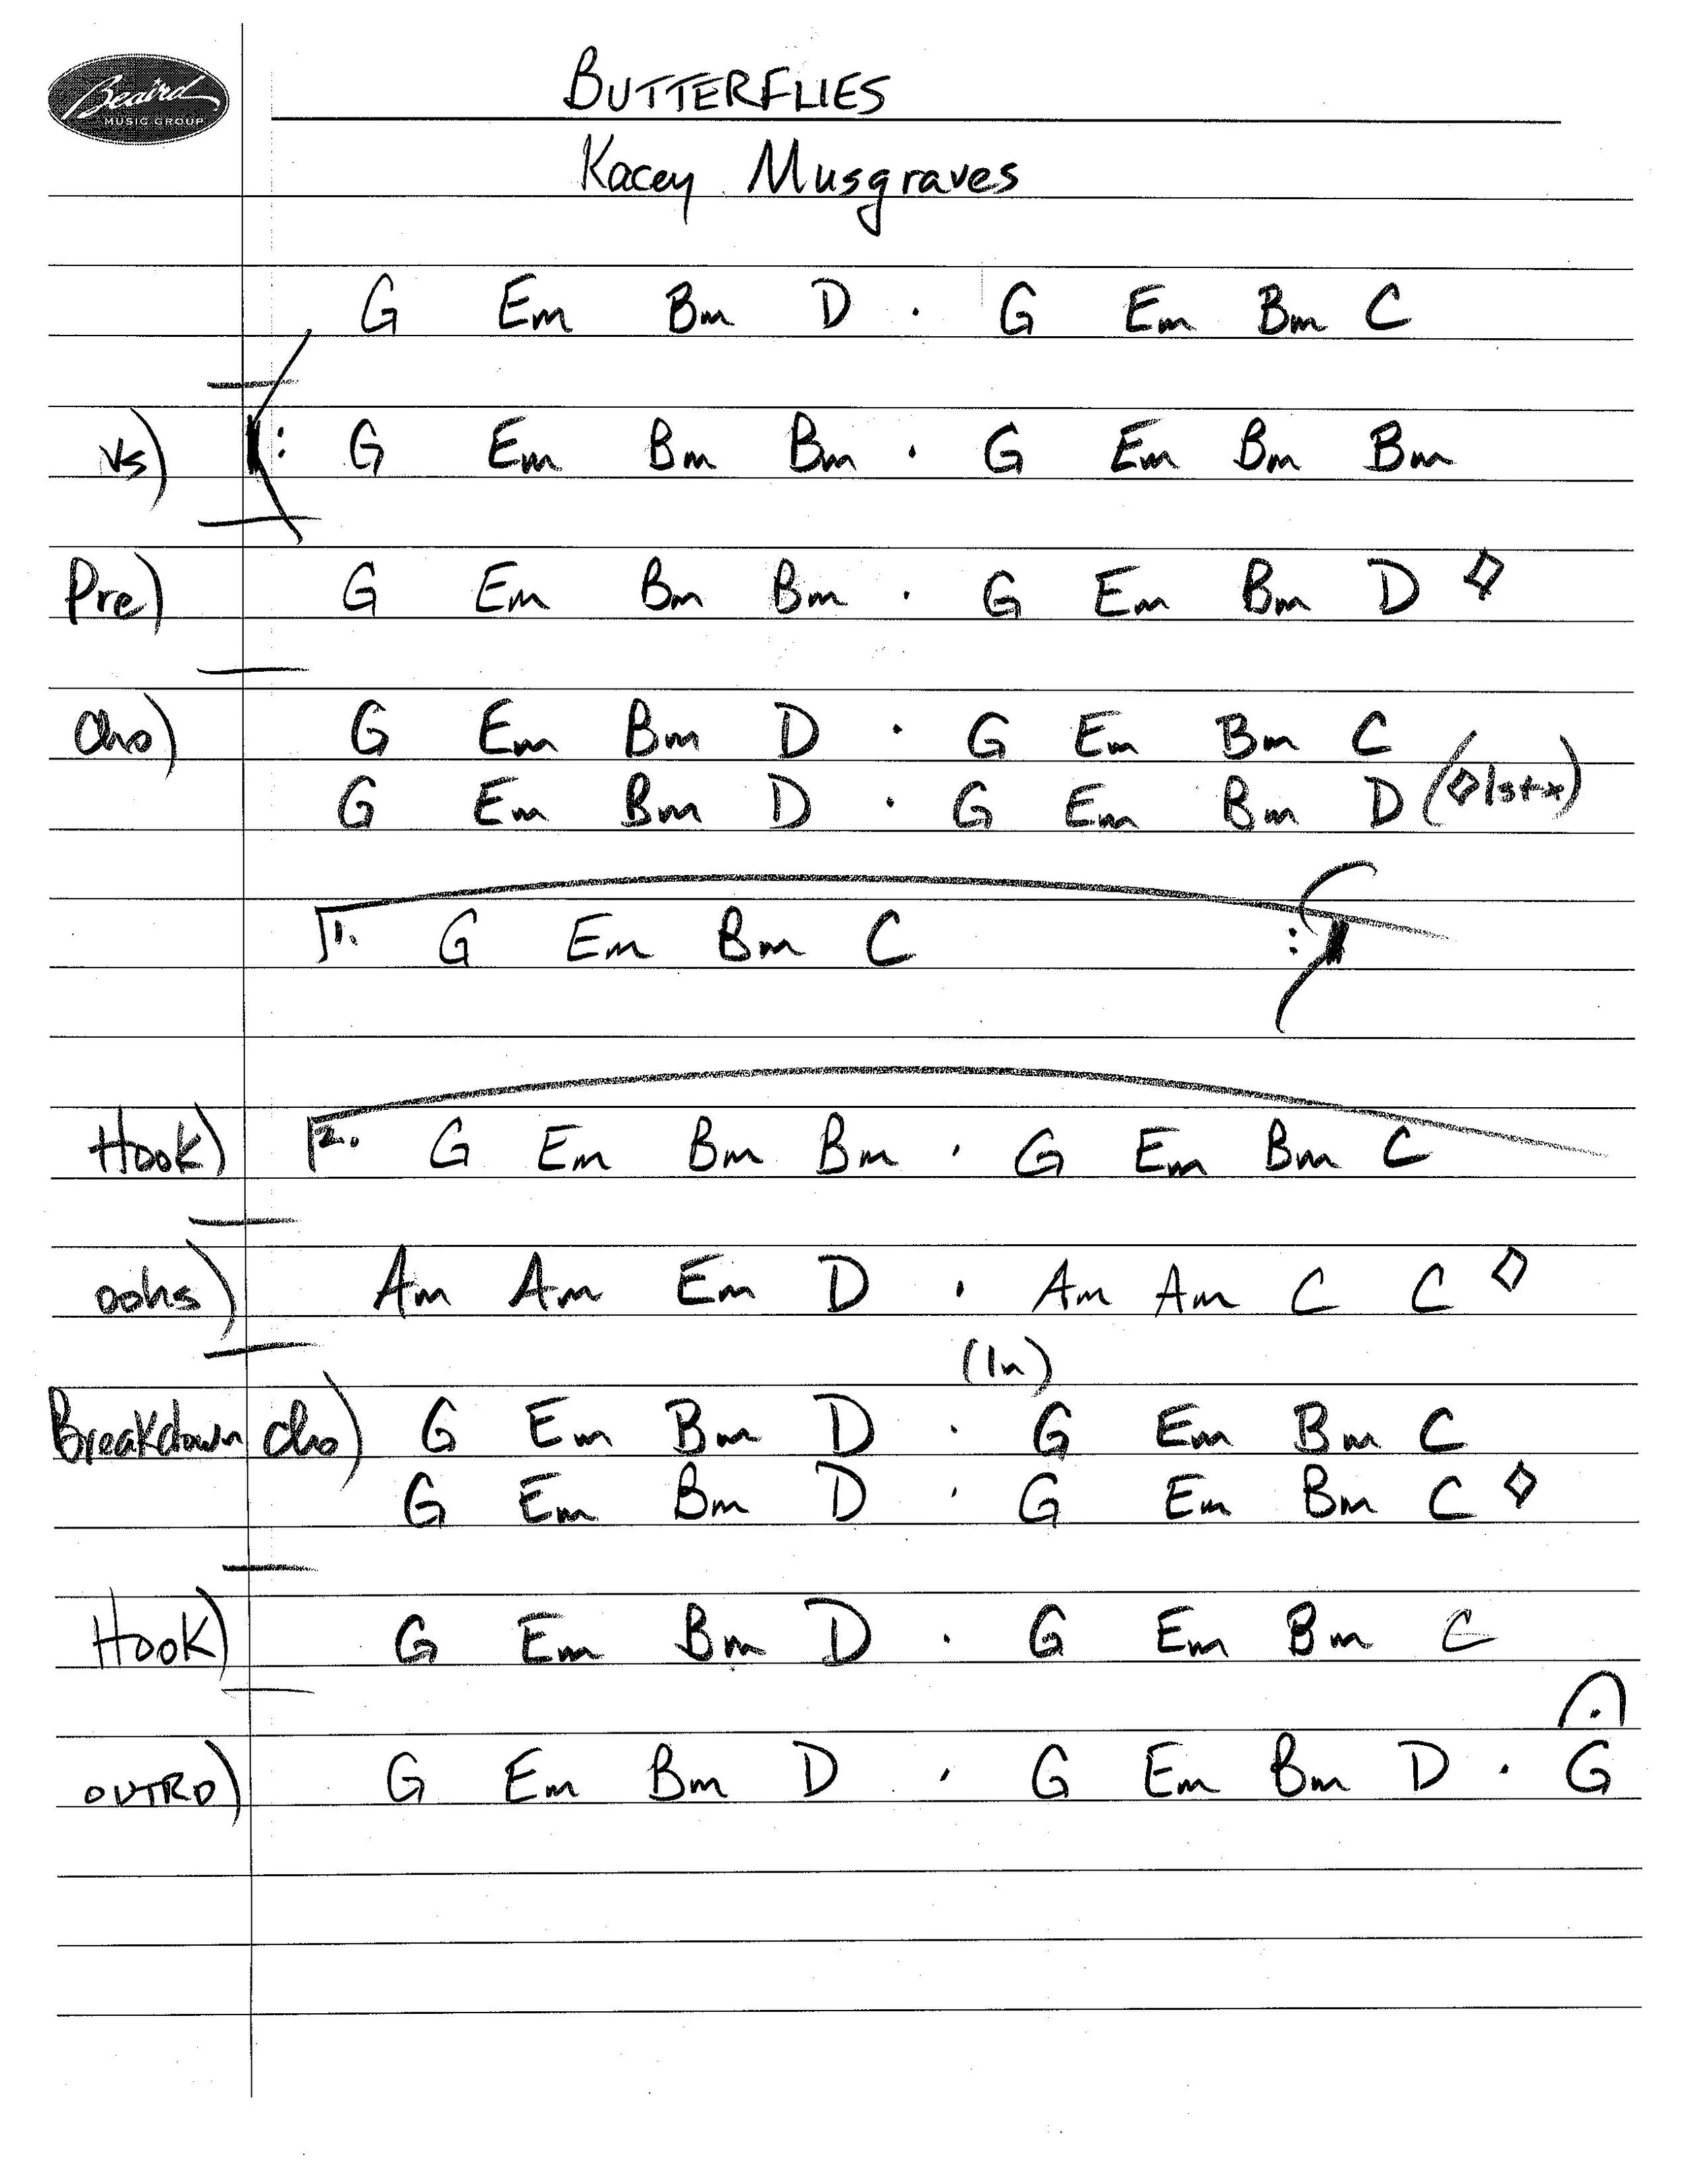 Beaird
MUSIC GROUP
BUTTERFLIES
Kacey Musgraves
G Em Bm D . G Em Bm C
Vs) : G Em Bm Bm . G Em Bm Bm
Pre) G Em Bm Bm . G Em Bm D ◇
Cho) G Em Bm D . G Em Bm C
G Em Bm D . G Em Bm D (◇1stx)
1. G Em Bm C :
Hook) 2. G Em Bm Bm . G Em Bm C
oohs) Am Am Em D . Am Am C C ◇
(In)
Breakdown cho) G Em Bm D . G Em Bm C
G Em Bm D . G Em Bm C ◇
Hook) G Em Bm D . G Em Bm C
OUTRO) G Em Bm D . G Em Bm D . G